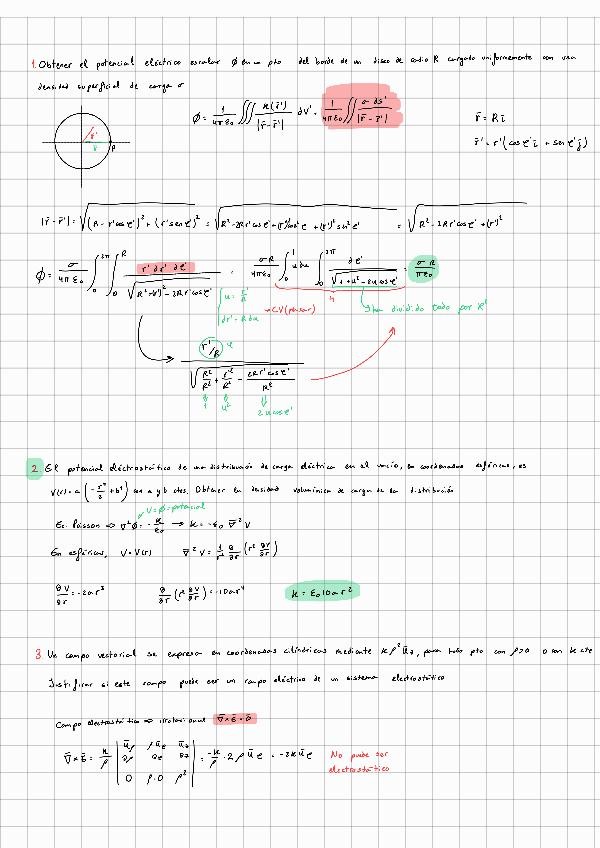 1. Obtener el potencial eléctrico escalar ϕ en un pto del borde de un disco de radio R cargado uniformemente con una
densidad superficial de carga σ
ϕ = 1/(4πε₀) ∭ κ(r̄')/|r̄ - r̄'| dV' = 1/(4πε₀) ∬ σ ds'/|r̄ - r̄'|
r̄ = R ī
r̄' = r'(cos φ' ī + sen φ' j̄)
r'
R
|r̄ - r̄'| = √((R - r' cos φ')² + (r' sen φ')²) = √(R² - 2Rr' cos φ' + (r')² cos² φ' + (r')² sen² φ') = √(R² - 2Rr' cos φ' + (r')²)
ϕ = σ/(4πε₀) ∫₀^2π ∫₀^R r' dr' dφ'/√(R² + (r')² - 2Rr' cos φ') = σR/(4πε₀) ∫₀¹ u du ∫₀^2π dφ'/√(1 + u² - 2u cos φ') = σR/(πε₀)
u = r'/R
dr' = R du
→ CV (pensar)
4
ha dividido todo por R²
r'/R u
√(R²/R² + r'²/R² - 2Rr' cos φ'/R²)
1 u² 2u cos φ'
2. El potencial electrostático de una distribución de carga eléctrica en el vacío, en coordenadas esféricas, es
V(r) = a(-r⁴/2 + b⁴) con a y b ctes. Obtener la densidad volumínica de carga de la distribución
V = ϕ = potencial
Ec. Poisson ⇒ ∇²ϕ = -κ/ε₀ → κ = -ε₀ ∇²V
En esféricas, V = V(r) ∇²V = 1/r² ∂/∂r (r² ∂V/∂r)
∂V/∂r = -2ar³ ∂/∂r (r² ∂V/∂r) = -10ar⁴ κ = ε₀10ar²
3. Un campo vectorial se expresa en coordenadas cilíndricas mediante κρ² ū_z, para todo pto con ρ>0 con κ cte
Justificar si este campo puede ser un campo eléctrico de un sistema electrostático
Campo electrostático ⇒ irrotacional ∇̄ × Ē = 0̄
∇̄ × Ē = κ/ρ | ū_ρ ρū_φ ū_z |
| ∂ρ ∂φ ∂z | = -κ/ρ · 2ρ ū_φ = -2κ ū_φ
| 0 ρ·0 ρ² |
No puede ser
electrostático